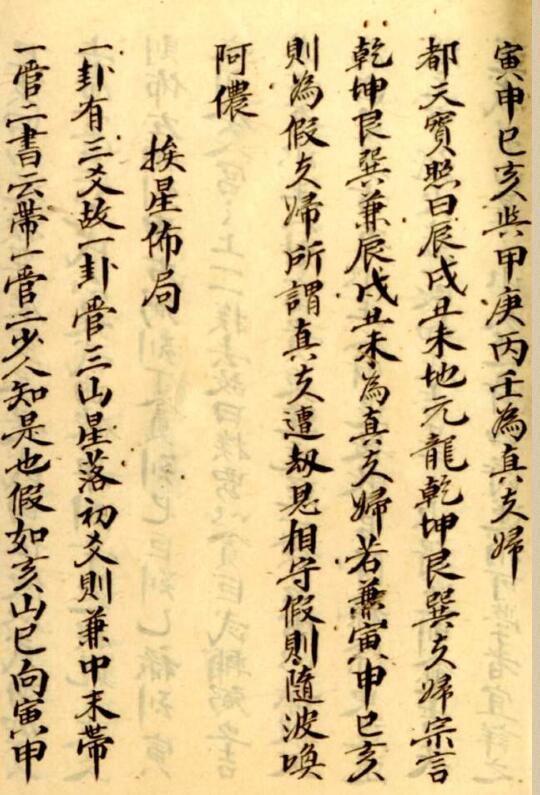 寅申巳亥與甲庚丙壬為真夫婦
都天寶照曰辰戌丑未地元龍乾坤艮巽夫婦宗言
乾坤艮巽兼辰戌丑未為真夫婦若兼寅申巳亥
則為假夫婦所謂真夫遭刼思相守假則隨波喚
阿儂
挨星佈局
一卦有三爻故一卦管三山星落初爻則兼中末帶
一管二書云帶一管二少人知是也假如亥山巳向寅申